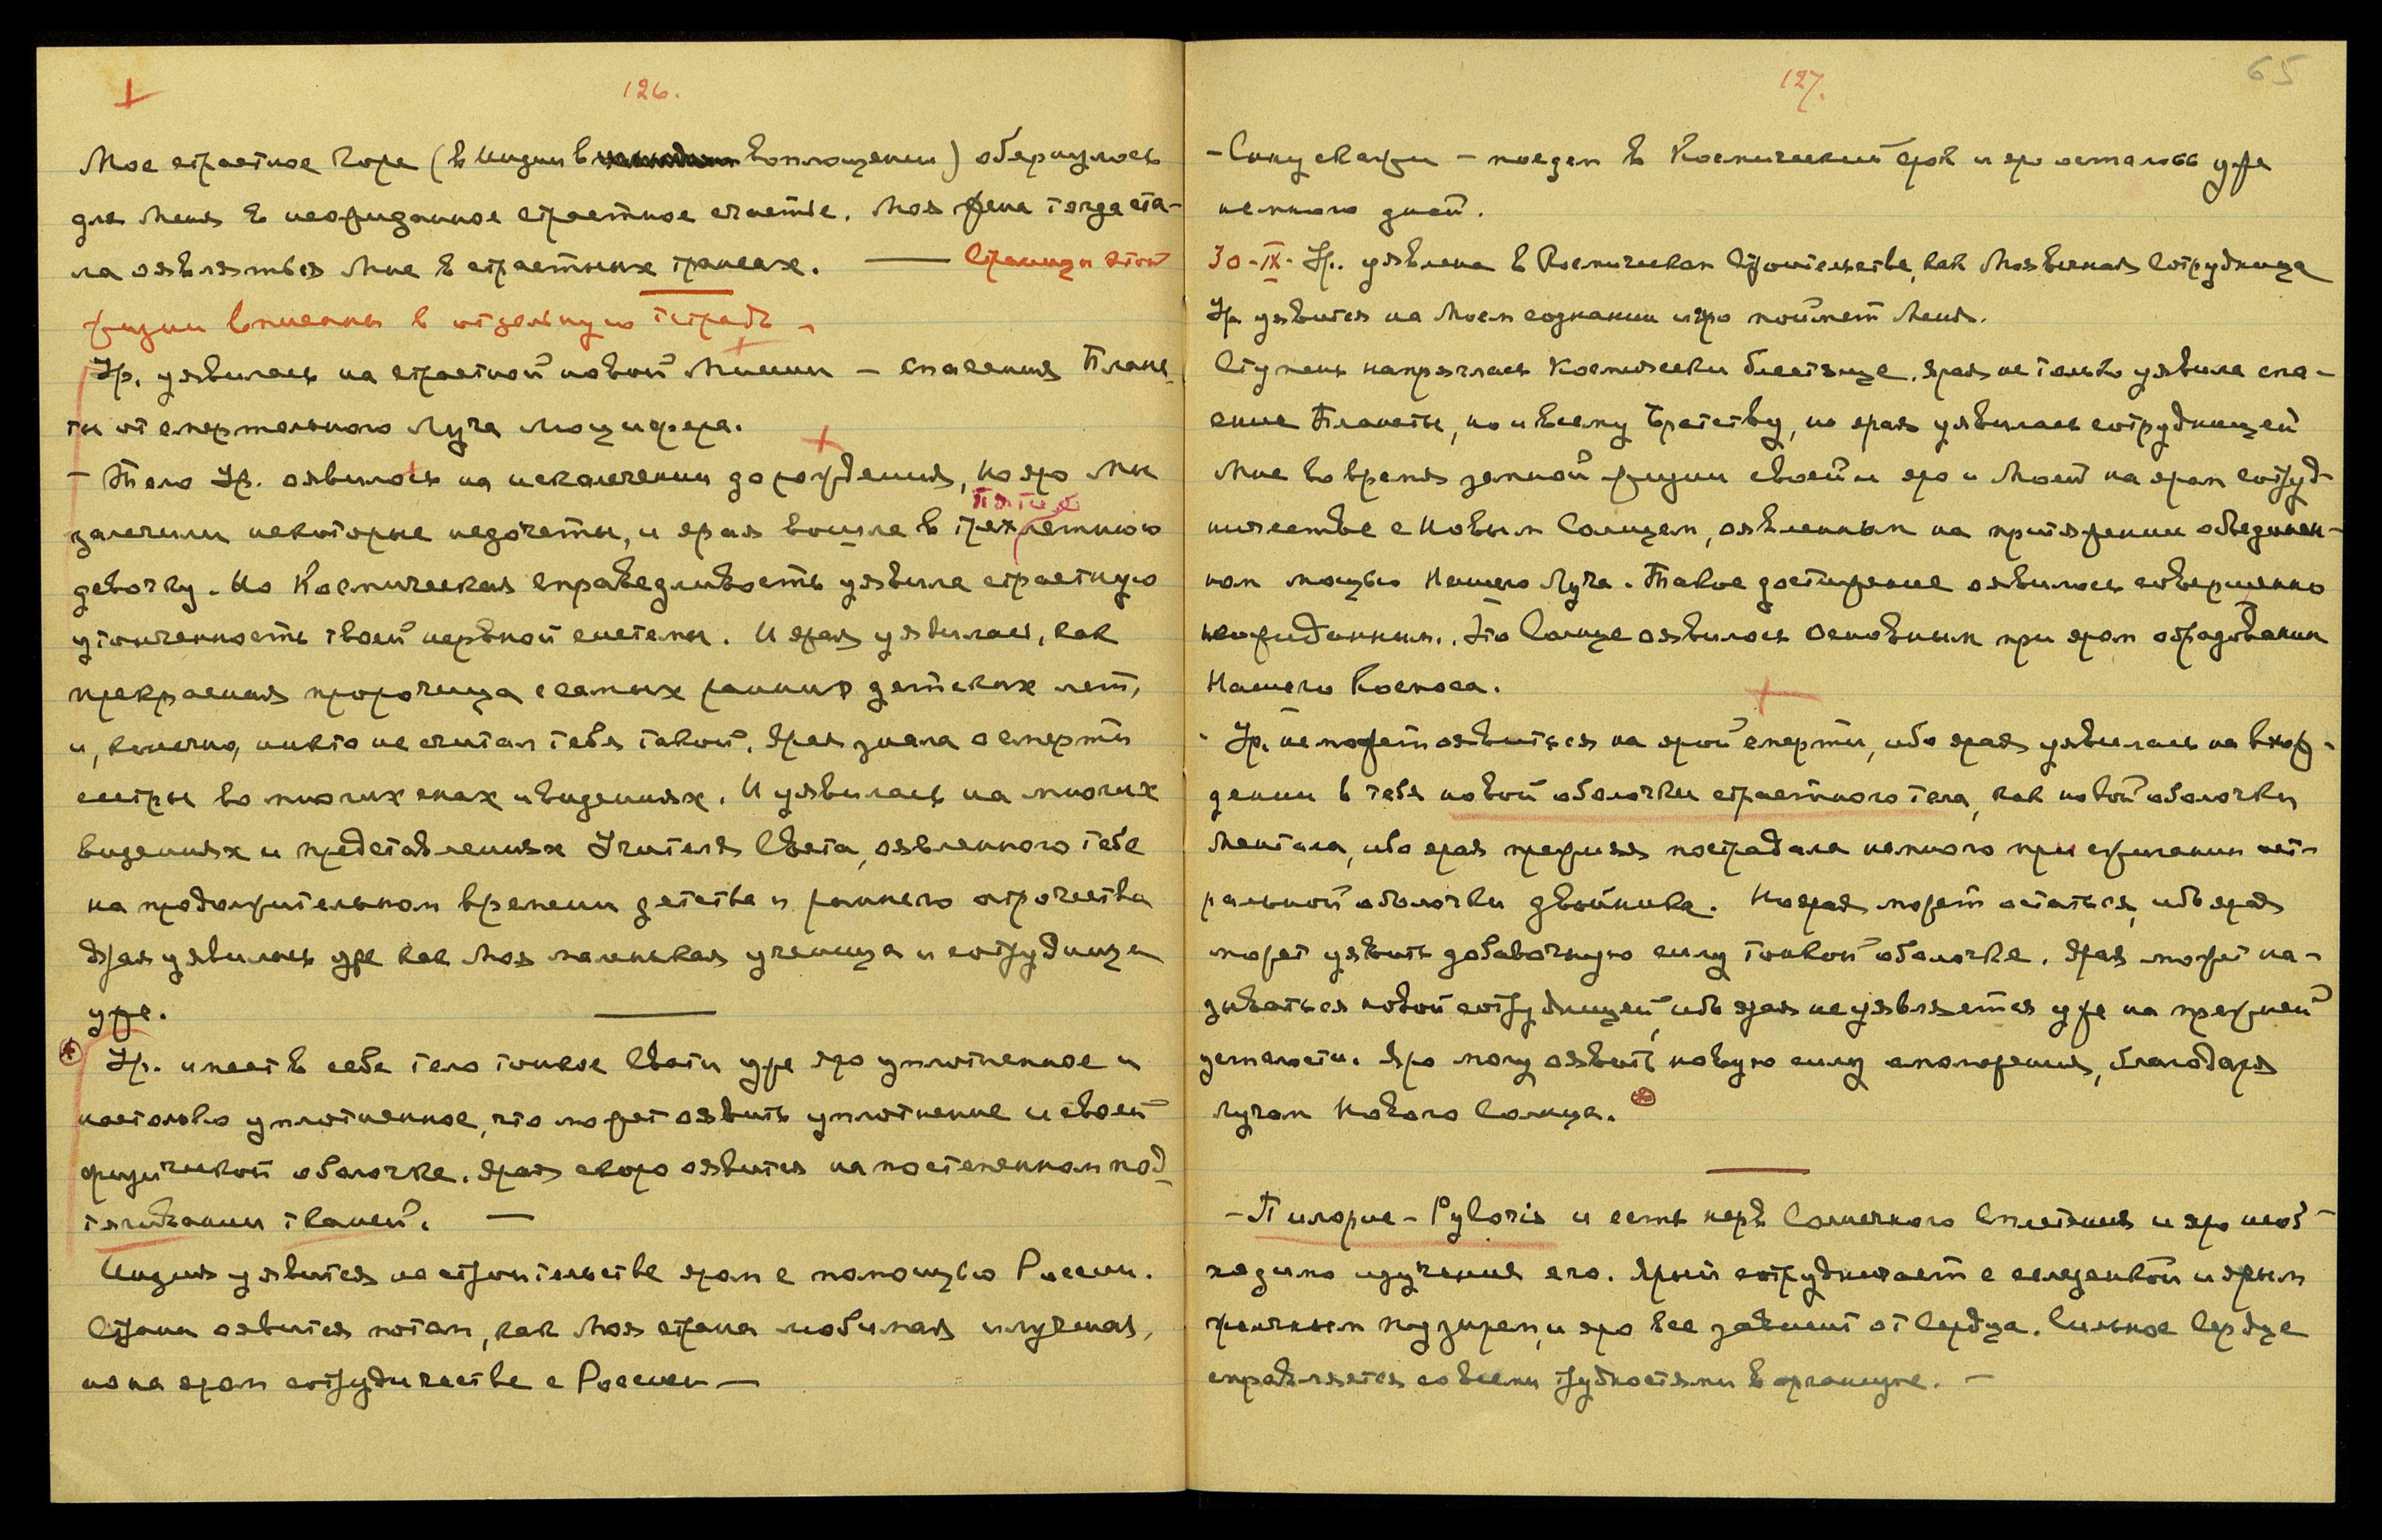 126.
Мое страстное Горе (в Индии в воплощении) обернулось
для Меня в неожиданное страстное счастье. Моя жена тогда ста-
ла являться Мне в страстных трансах. — Страницы этой
жизни вписаны в отдельную тетрадь –
Ур. уявилась на страстной новой Миссии – спасения Плане-
ты от смертельного Луча Люцифера.
– Тело Ур. оявилось на искалечении до рождения, но яро Мы
пяти
залечили некоторые недочеты, и ярая вошла в трехлетнюю
девочку. Но Космическая справедливость уявила страстную
утонченность твоей нервной системы. И ярая уявилась, как
прекрасная пророчица с самых ранних детских лет,
и, конечно, никто не считал тебя такой. Ярая знала о смерти
сестры во многих снах и видениях. И уявилась на многих
видениях и представлениях Учителя Света, оявленного тебе
на продолжительном времени детства и раннего отрочества
Ярая уявилась уже как Моя маленькая ученица и сотрудница
уже.
Ур. имеет в себе тело тонкое Свати уже яро уплотненное и
настолько уплотненное, что может оявить уплотнение и своей
физической оболочке. Ярая скоро оявится на постепенном под-
тягивании тканей. —
Индия уявится на строительстве яром с помощью России.
Страна оявится потом, как Моя страна любимая и лучшая,
но на яром сотрудничестве с Россией —
127.
65
– поедем в Космический срок и яро осталось уже
немного дней.
30-IX- Ур. уявлена в Космическом Строительстве, как Моя вечная Сотрудница
Ур. уявится на Моем сознании и яро поймет Меня.
Ступень напряглась Космически блестяще. Ярая не только уявила спа-
сение Планеты, но и всему Братству, но ярая уявилась сотрудницей
Мне во время земной жизни своей и яро и Моей на яром сотруд-
ничестве с Новым Солнцем, оявленным на притяжении объединен-
ном мощью Нашего Луча. Такое достижение оявилось совершенно
неожиданным. Это Солнце оявилось основным при яром образовании
Нашего Космоса.
Ур. не может оявиться на ярой смерти, ибо ярая уявилась на вхож-
дении в тебя новой оболочки страстного тела, как новой оболочки
Ментала, ибо ярая прежняя пострадала немного при сжигании аст-
ральной оболочки двойника. Но ярая может остаться, ибо ярая
может уявить добавочную силу тонкой оболочке. Ярая может на-
зываться новой сотрудницей, ибо ярая не уявляется уже на прежней
усталости. Яро могу оявить новую силу омоложения, благодаря
лучам Нового Солнца.
– Пилорис – Pyloris и есть нерв Солнечного Сплетения и яро необ-
ходимо изучение его. Ярый сотрудничает с селезенкой и ярым
желчным пузырем, и яро все зависит от Сердца. Сильное Сердце
справляется со всеми трудностями в организме. –